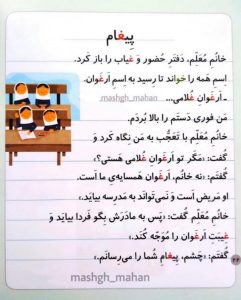 پِیغام
خانُم مُعَلِّم، دَفتَرِ حُضور و غیاب را باز کَرد.
اِسمِ هَمه را خواند تا رِسید به اِسمِ اَرغَوان.
ـ اَرغَوانِ غُلامی...
mashgh_mahan
مَن فوری دَستَم را بالا بُردَم.
خانُم مُعَلِّم با تَعَجُّب به مَن نِگاه کَرد و
گُفت: «مَگَر تو اَرغَوانِ غُلامی هَستی؟»
گُفتَم: «نه خانُم، اَرغَوان هَمسایه‌ی ما است.
او مَریض اَست و نِمی‌تَوانَد به مَدرِسه بیایَد.»
خانُم مُعَلِّم گُفت: «پَس به مادَرَش بِگو فَردا بیایَد و
غِیبَتِ اَرغَوان را مُوَجَّه کُنَد.»
گُفتَم: «چَشم، پِیغامِ شُما را می‌رِسانَم.»
mashgh_mahan